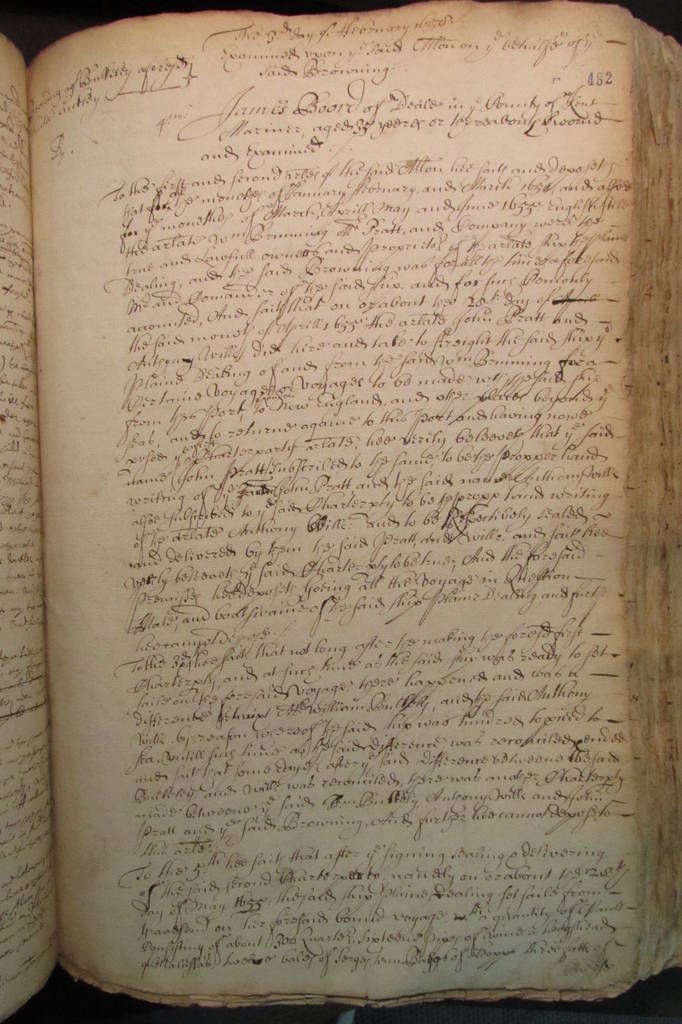 The 3rd day of February 1656
Examined upon ye said Allon on ye behalfe of ye
said Browning
482
4us
Rp.
James Board of Deale in ye County of Kent
Mariner, aged 39 yeeres or thereabouts sworne
and Examined
To the first and second arles of the said Allon hee saith and deposeth
that for the monethes of January February and March 1654, and also
for ye monethes of March, Aprill May and June 1655 English stile
the arlate Wm Brunning Mr Pratt, and Company were the
true and Lawfull owners and Proprietors of the arlate ship the plaine
Dealing, and the said Browning was for all the time aforesaid
Mr and Comander of the said ship and for such Comonly
accounted, And saith that on or about the 28th day of
the said moneth of Aprill 1655 the arlate John Pratt and
Anthony Wille did hire and take to freight the said ship ye
Plaine Dealing of and from the said Wm Brunning for a
Certaine Voyage or voyages to be made with the said ship
from this Port, to New England, and other places beyond ye
seas, and to returne againe to this Port and having nowe
seene ye Charterparty arlate, hee verily beleeveth that ye said
name John Pratt subscribed to the same to be the propper hand
writing of the John Pratt and the said name Anthony Wille
alsoe subscribed to ye said Charterpty to be the propp hand writing
of the arlate Anthony Wille and to be respectively sealed
and delivered by them the said Pratt, and Wille, and saith hee
verily beleeveth ye said Charterpty to be true, And the foresaid
Premisses hee deposeth, goeing all the Voyage in Question
Mate, and boatswaine of the said ship Plaine Dealing and further
hee cannot depose
To the 3d hee saith that not long after the making the foresd first
Charterpty, and at such time as the said ship was ready to set
saile on the foresaid Voyage there happened and was a
difference betwixt Mr William Bulkley, and the said Anthony
Wille by reason whereof the said ship was hindred to proceed to
sea, untill such time as the said difference was reconciled & ended
and saith that some dayes after ye said difference betweene the said
Bulkley and Wille was reconciled, there was another Charterpty
made betweene ye said Wm Bulkley Antony Wille and John
Pratt and ye said Browning, And further hee cannot depose to
this arle
To the 5th hee saith that after ye signing sealing & delivering
of the said second Charterparty, namely on or about the 28th
day of May 1655, the said ship Plaine Dealing set saile from
Gravesend on her foresaid bound voyage with a quantity of
Consisting of about 300 Quarters, sixteene pipes of wine &
of Malassas, twelve bales of serges, tenn Baggs of Hopps three